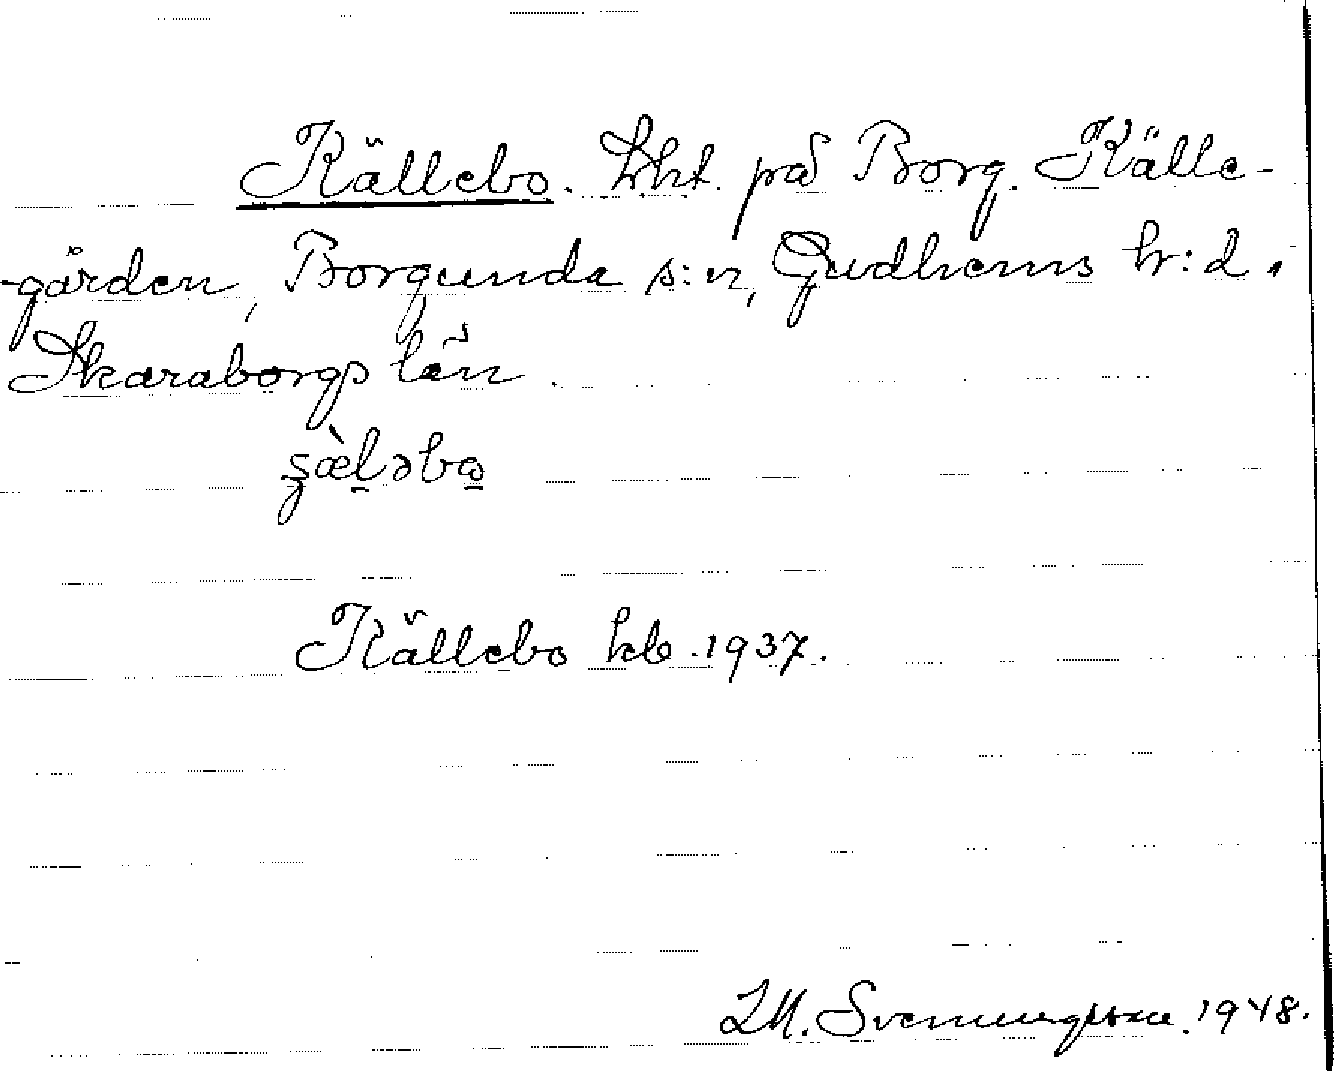 Källebo. Lht. på Borg. Källe-
-gården, Borgunda s:n, Gudhems h:d.
Skaraborgs län.
Källebo kb. 1937.
LM. Svenungsson. 1948.